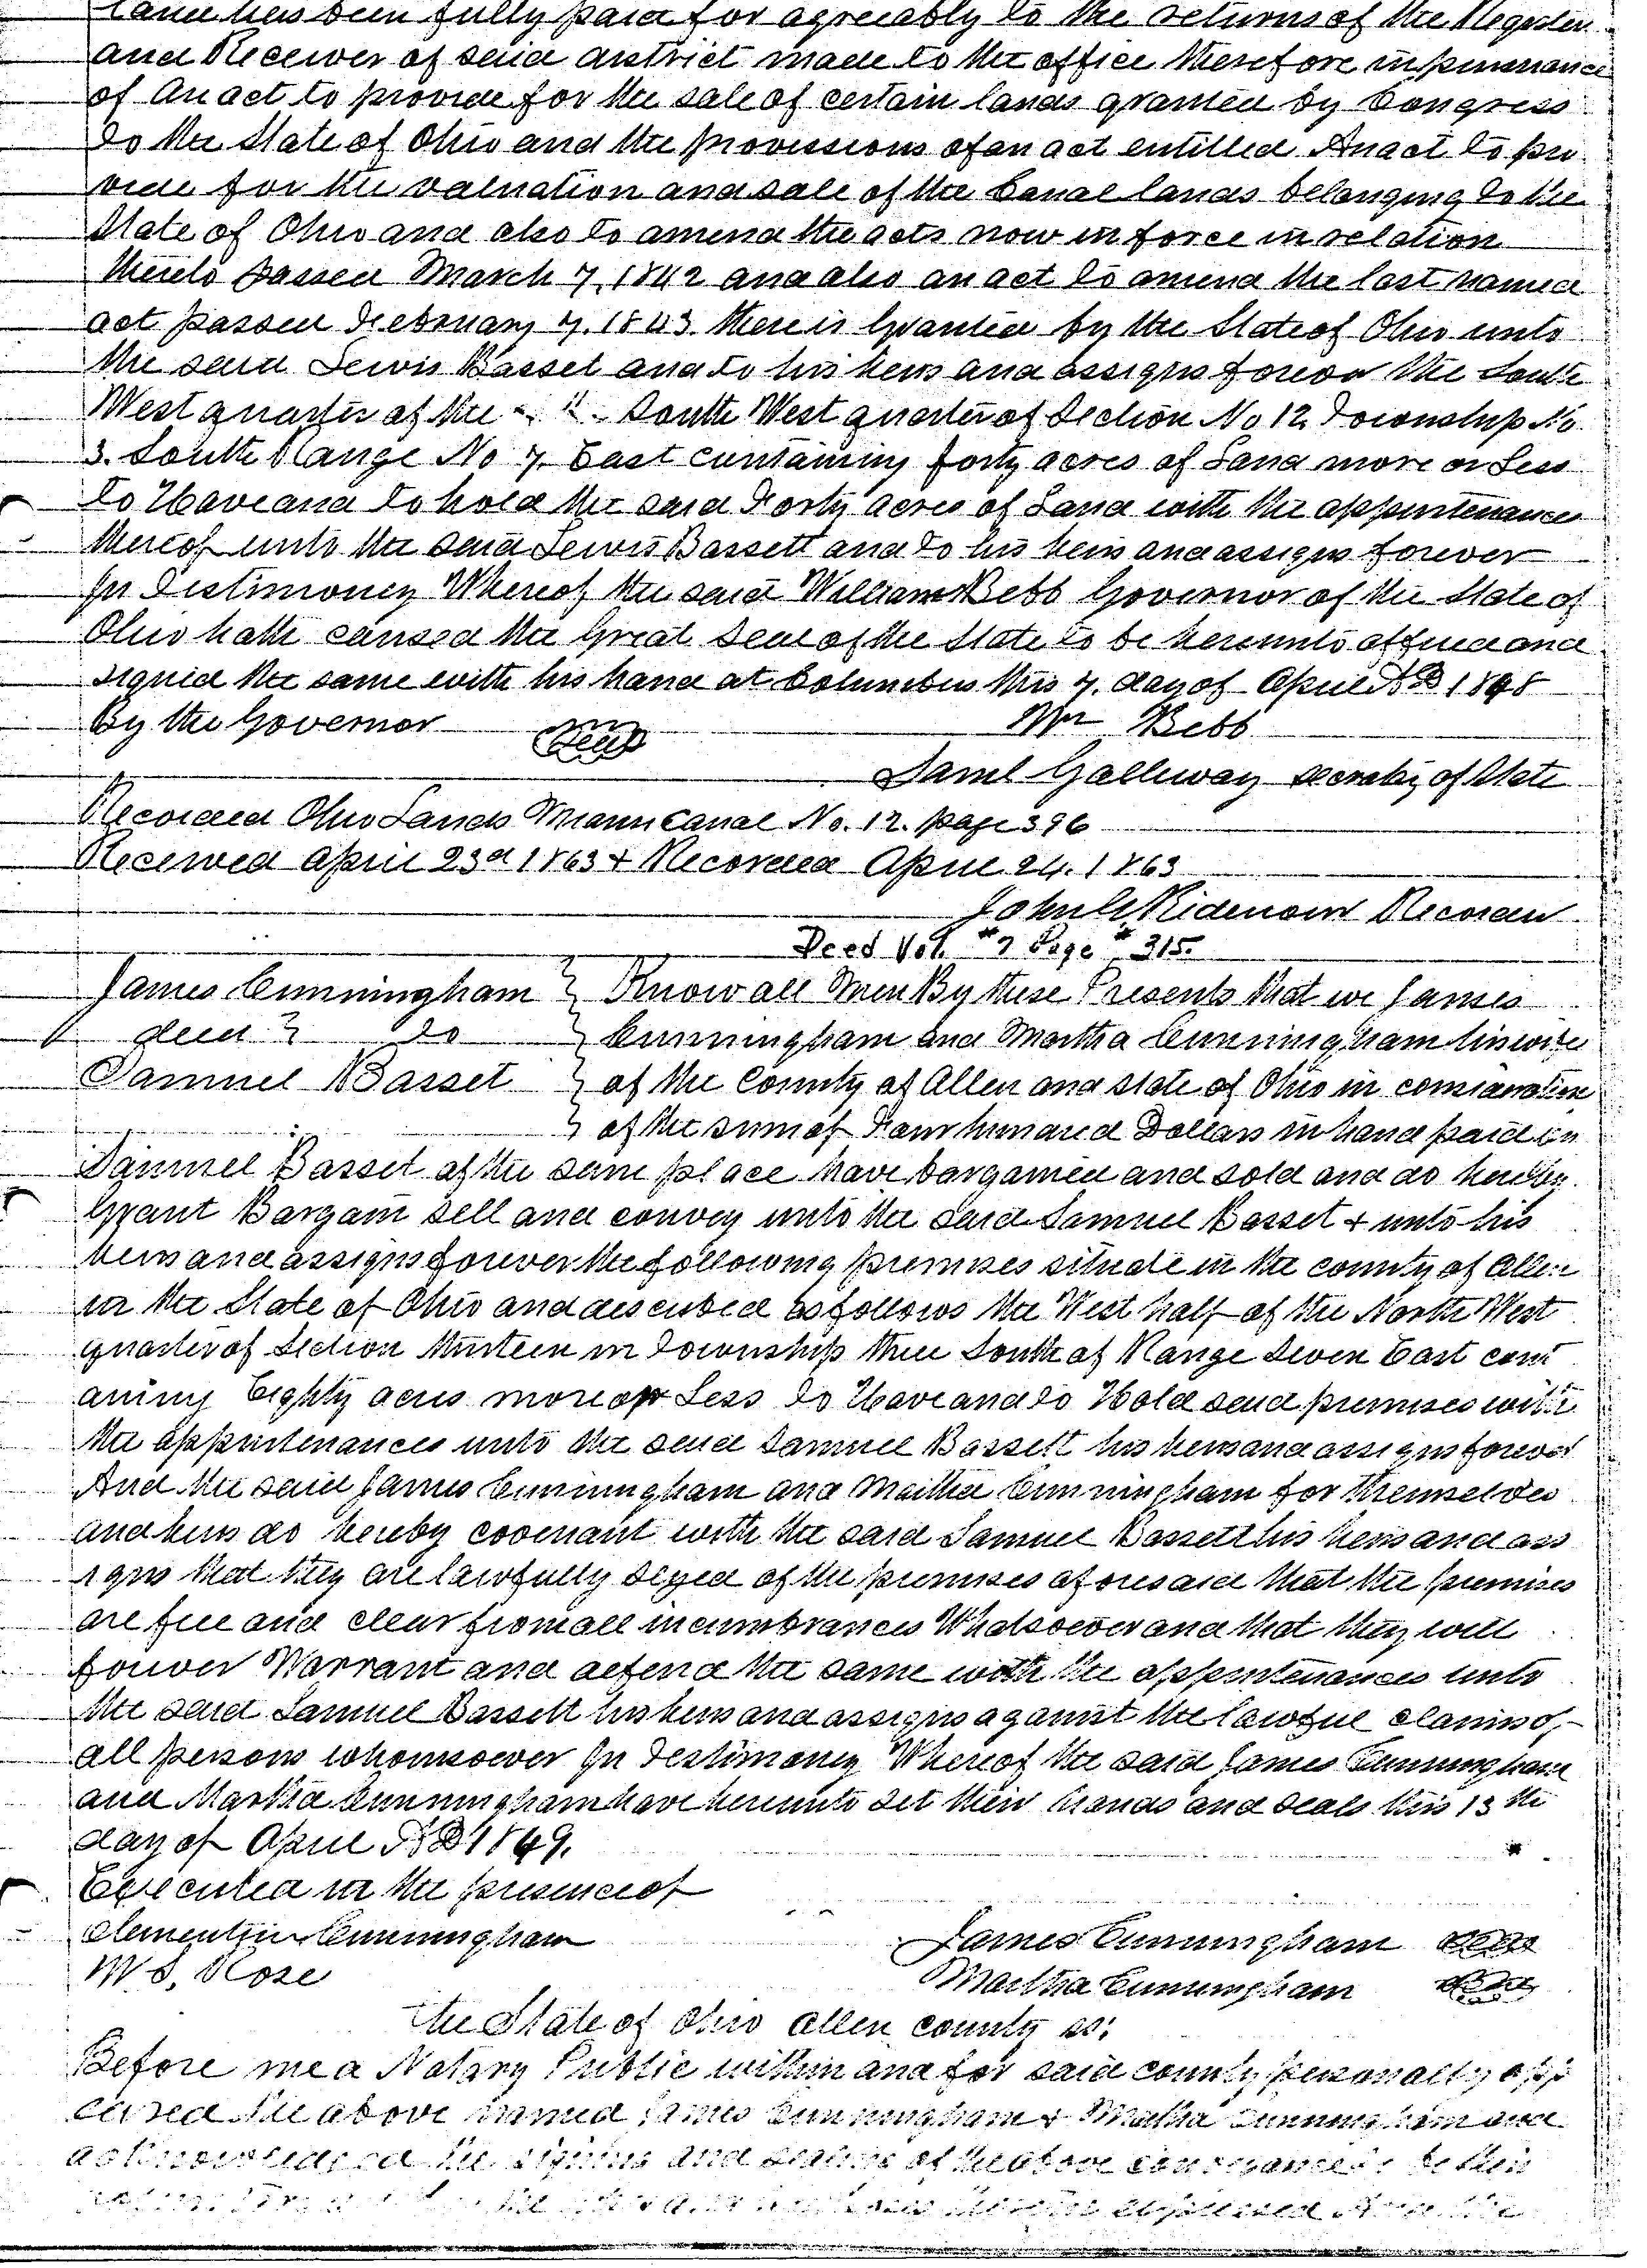 Land has been fully paid for agreeably to the returns of the Register
and Receiver of said district made to the office therefore in pursuance
of An act to provide for the sale of certain lands granted by Congress
to the State of Ohio and the provissions of an act entitled An act to pro
vide for the valuation and sale of the Canal lands belonging to the
State of Ohio and also to amend the acts now in force in relation
thereto passed March 7, 1842 and also an act to amend the last named
act passed February 7. 1843. there is Granted by the State of Ohio unto
the said Lewis Basset and to his heirs and assigns forever the South
West quarter of the South West quarter of Section No 12. Township No
3. South Range No 7. East containing forty acres of Land more or Less
To Have and to hold the said Forty acres of Land with the appurtenances
thereof unto the said Lewis Bassett and to his heirs and assigns forever
In Testimoney Whereof the said William Bebb Governor of the State of
Ohio hath caused the Great Seal of the State to be hereunto affixed and
signed the same with his hand at Columbus this 7. day of April AD 1848
By the Governor Seal Wm Bebb
Saml Galloway secretary of State
Recorded Ohio Lands Miami canal No. 12. page 396
Received April 23d 1863 + Recorded April 24. 1863
John Ridenour Recorder
Deed Vol. #7 Page # 315.
James Cunningham } Know all Men By these Presents that we James
deed to } Cunningham and Martha Cunningham his wife
Samuel Basset } of the County of Allen and state of Ohio in consideration
} of the sum of Four hundred Dollars in hand paid by
Samuel Basset of the same place have bargained and sold and do hereby
Grant Bargain sell and convey unto the said Samuel Basset + unto his
heirs and assigns forever the following premises situate in the county of Allen
in the State of Ohio and described as follows the West half of the North West
quarter of Section thirteen in Township three South of Range Seven East cont
aining Eighty acres more or Less To Have and to Hold said premises with
the appurtenances unto the said Samuel Bassett his heirs and assigns forever
And the said James Cunningham and Martha Cunningham for themselves
and heirs do hereby covenant with the said Samuel Bassett his heirs and ass
igns that they are lawfully seized of the premises aforesaid that the premises
are free and clear from all incumbrances Whatsoever and that they will
forever Warrant and defend the same with the appurtenances unto
the said Samuel Bassett his heirs and assigns against the lawful claims of
all persons whomsoever In Testimoney Whereof the said James Cunningham
and Martha Cunningham have hereunto set their hands and seals this 13 th
day of April AD 1849.
Executed in the presence of
Clementin Cunningham James Cunningham Seal
W S. Rose Martha Cunningham Seal
The State of Ohio Allen county ss:
Before me a Notary Public within and for said county personally app
eared the above named James Cunningham + Martha Cunningham and
acknowledged the signing and sealing of the above conveyance to be their
expressed